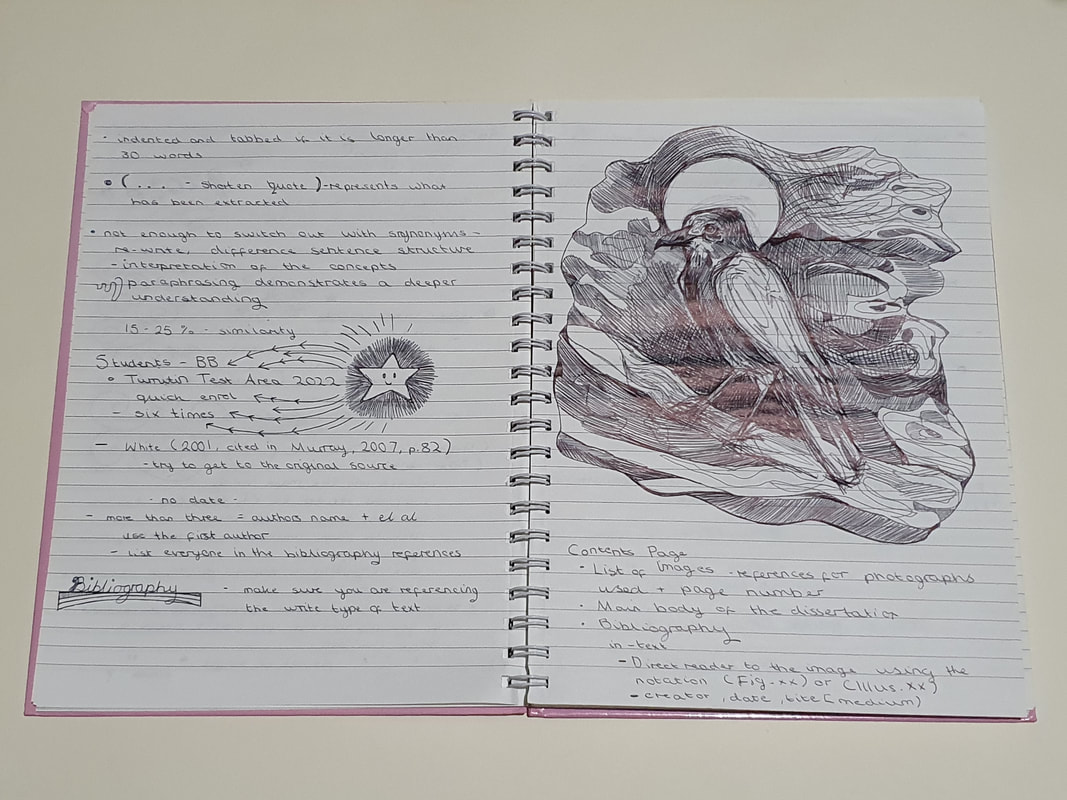 - indented and tabbed if it is longer than
30 words
• (... - shorten quote) - represents what
has been extracted
• not enough to switch out with synonyms -
re-write, difference sentence structure
- interpretation of the concepts
paraphrasing demonstrates a deeper
understanding
15-25 % - similarity
Students - BB
• Turnitin Test Area 2022
quick enrol
- six times
- White (2001, cited in Murray, 2007, p.82)
- try to get to the original source
- no date -
- more than three = authors name + et al
use the first author
- List everyone in the bibliography references
Bibliography - make sure you are referencing
the write type of text
Contents Page
• List of Images - references for photographs
used + page number
• Main body of the dissertation
• Bibliography
in-text
- Direct reader to the image using the
notation (Fig.xx) or (Illus.xx)
- creator, date, [medium)